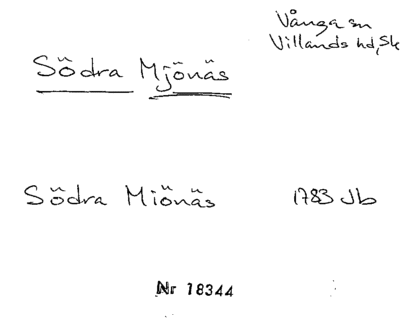 Vånga sn
Villands hd, Sk
Södra Mjönäs
Södra Miönäs 1783 Jb
Nr 18344